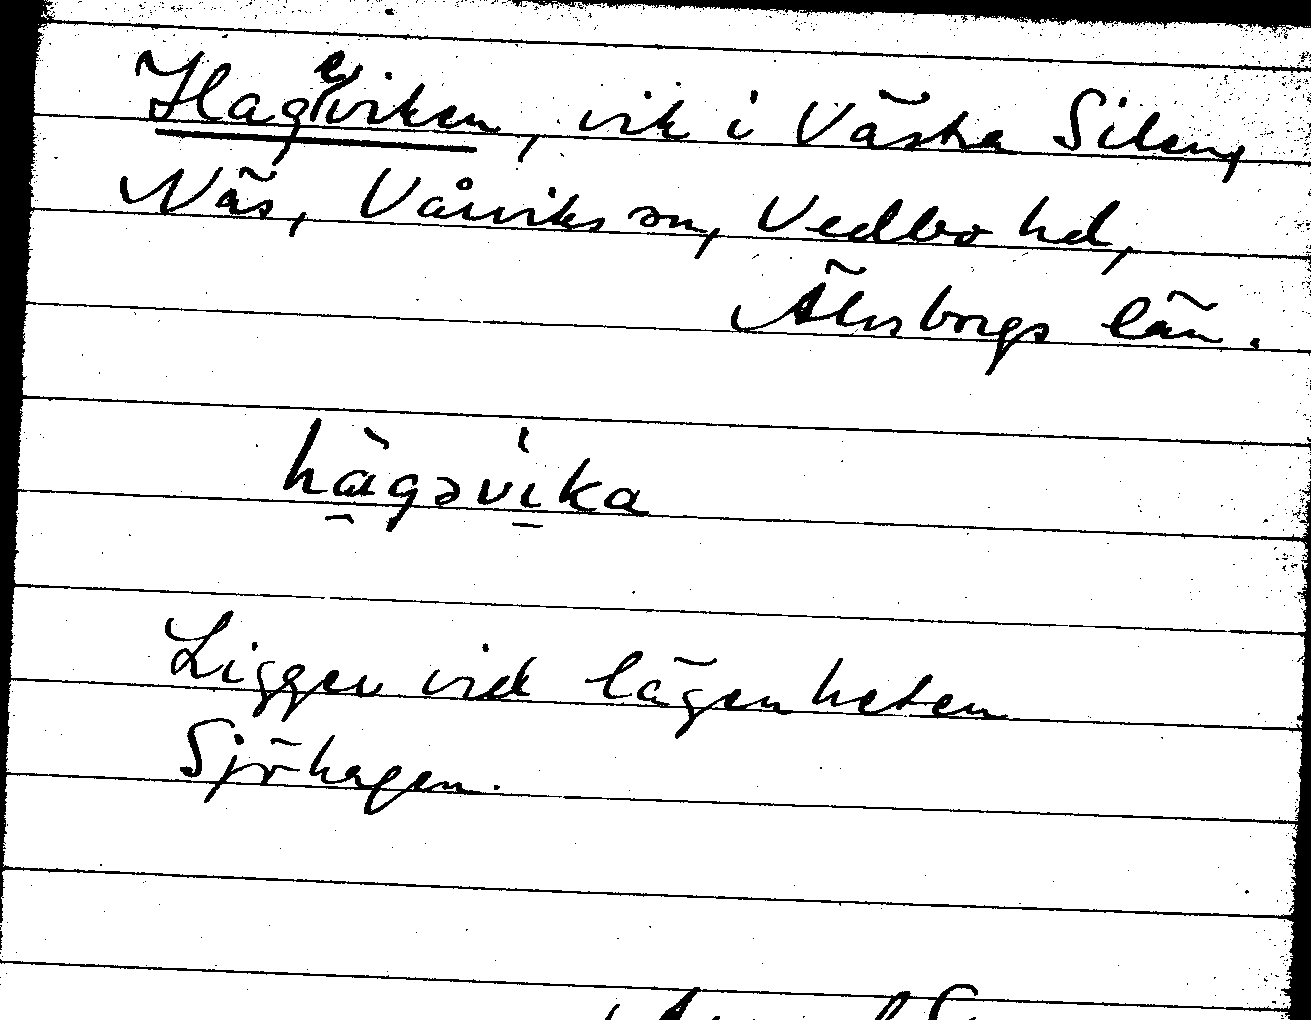 Hageviken, vik i Västra Silen,
Näs, Vårviks sn, Vedbo hd,
Älvsborgs län.
hàgəvi̱ka
Ligger vid lägenheten
Sjöhagen.